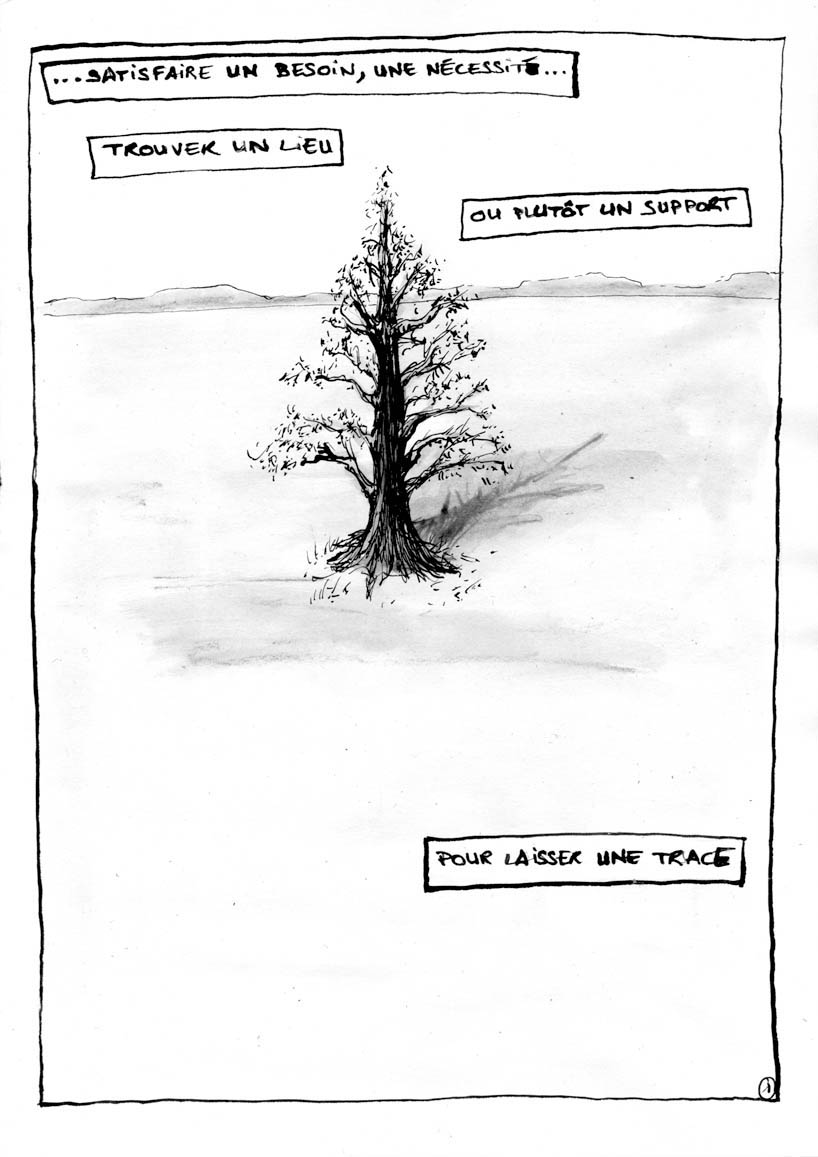 ...SATISFAIRE UN BESOIN, UNE NÉCESSITÉ...
TROUVER UN LIEU
OU PLUTÔT UN SUPPORT
POUR LAISSER UNE TRACE
1